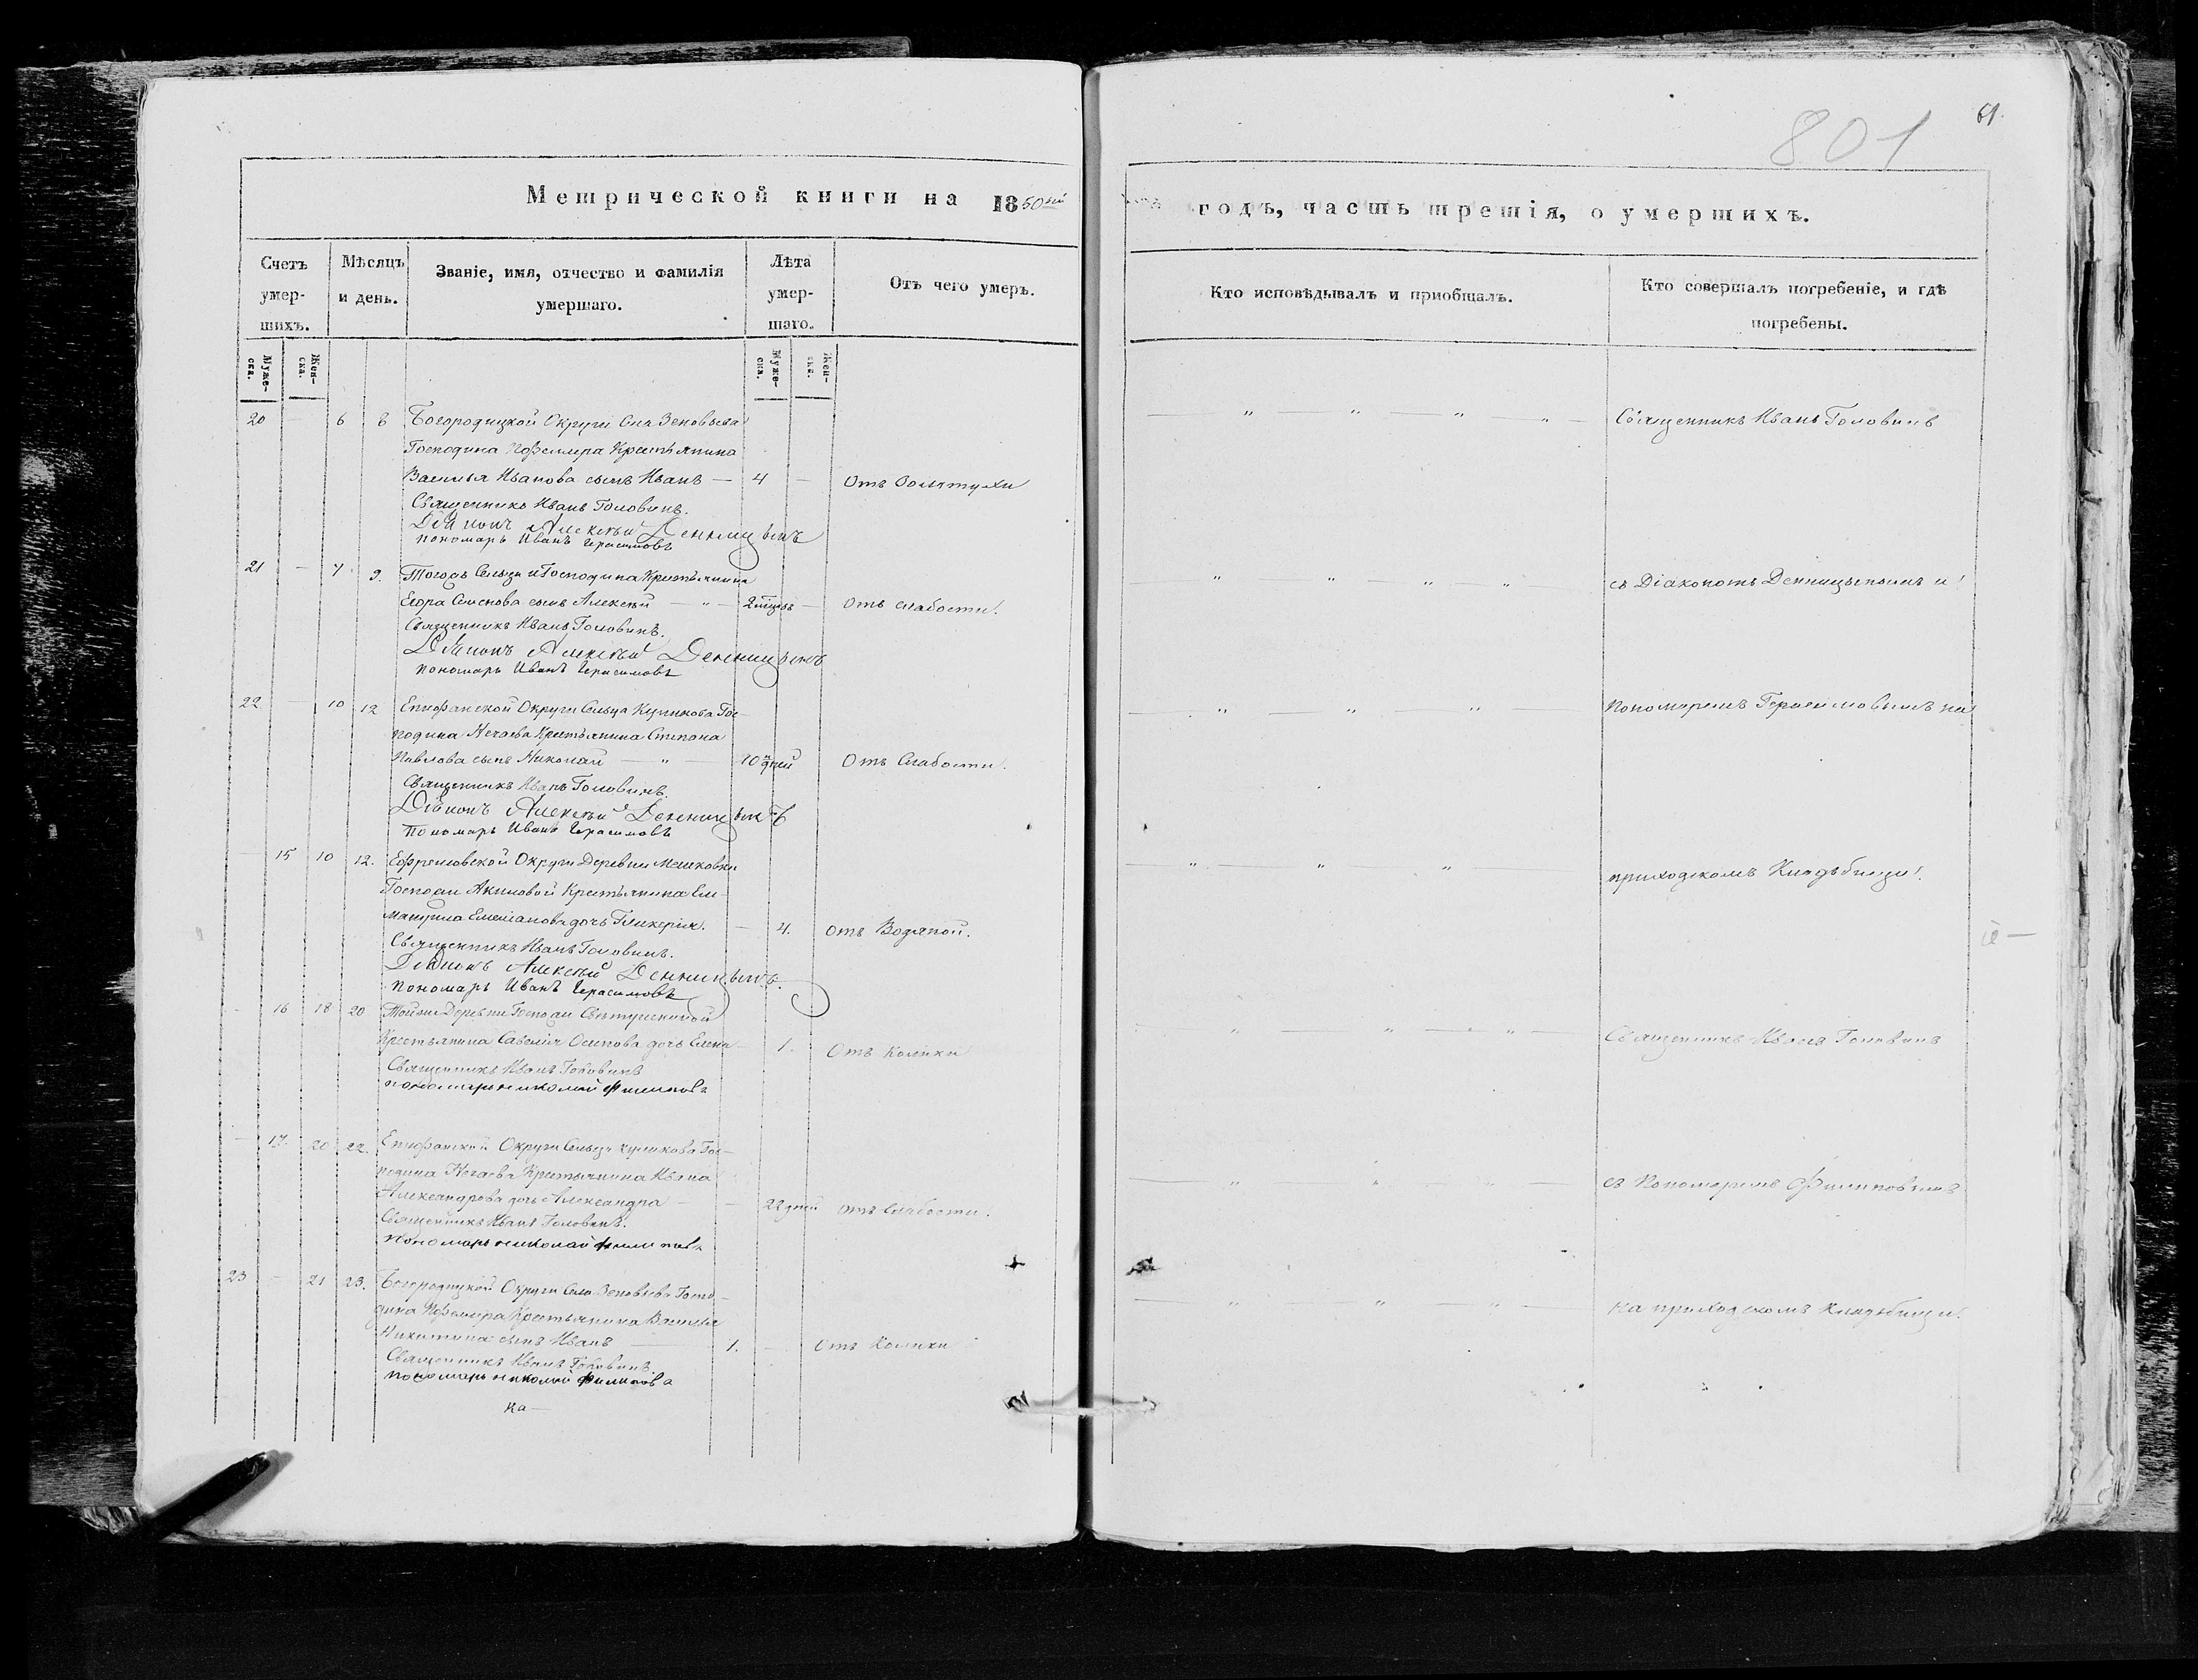 801
61.
Метрической книги на 1850ый
годъ, часть третія, о умершихъ.
Счетъ умер-шихъ.
Мѣсяцъ и день.
Званіе, имя, отчество и фамилія умершаго.
Лѣта умер-шаго.
Отъ чего умеръ.
Кто исповѣдывалъ и пріобщалъ.
Кто совершалъ погребеніе, и гдѣ погребены.
Муже-ска.
Жен-ска.
Муже-ска.
Жен-ска.
20 — 6 8 Богородицкой Округи Села Зеновьева
Господина Крестьянина
Василья Иванова сынъ Иванъ — 4 —
Священникъ Иванъ Головинъ.
Діаконъ Алексѣй Денницынъ
пономарь Иванъ Герасимовъ
21 — 7 9. Тогожъ Сельца и Господина Крестьянина
Егора Семенова сынъ Алексѣй — " — 2 мѣсяцъ — Отъ слабости.
Священникъ Иванъ Головинъ.
Діаконъ Алексѣй Денницынъ
пономарь Иванъ Герасимовъ
22 — 10 12 Епифанской Округи Сельца Куликова Гос-
подина Нечаева Крестьянина Степана
Павлова сынъ Николай — " — 10 дней Отъ Слабости.
Священникъ Иванъ Головинъ.
Діаконъ Алексѣй Денницынъ
Пономарь Иванъ Герасимовъ
— 15 10 12. Ефремовской Округи Деревни Мешковки
Госпожи Акимовой Крестьянина Ем-
мануила Емельянова дочь Гликерія. — 4. отъ Водяной.
Священникъ Иванъ Головинъ.
Діаконъ Алексѣй Денницынъ.
пономарь Иванъ Герасимовъ
- 16 18 20 Тойже Деревни Госпожи
Крестьянина Савелія Осипова дочь Елена — 1. Отъ Колики
Священникъ Иванъ Головинъ
пономарь николай филиповъ
— 17. 20 22. Епифанской Округи Сельца Куликова Гос-
подина Нечаева Крестьянина Ивана
Александрова дочь Александра — — 22 дней отъ Слабости.
Священникъ Иванъ Головинъ.
пономарь николай филиповъ
23 — 21 23. Богородицкой Округи Села Зеновьева Госпо-
дина Крестьянина Василья
Никитина сынъ Иванъ — 1. — Отъ Колики
Священникъ Иванъ Головинъ.
пономарь николай филиповъ
на —
Священникъ Иванъ Головинъ
съ Діакономъ Денницынымъ и
Пономаремъ Герасимовымъ на
приходскомъ Кладьбищи.
Священникъ Иванъ Головинъ
съ Пономаремъ Филиповымъ
на приходскомъ кладьбищи.